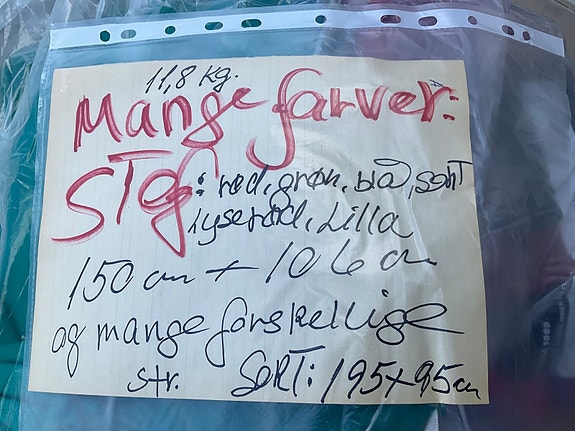 11,8 kg.
Mange farver:
Stof: rød, grøn, blå, sort
lyserød, Lilla
150 cm + 106 cm
og mange forskellige
str. SORT: 195x95cm